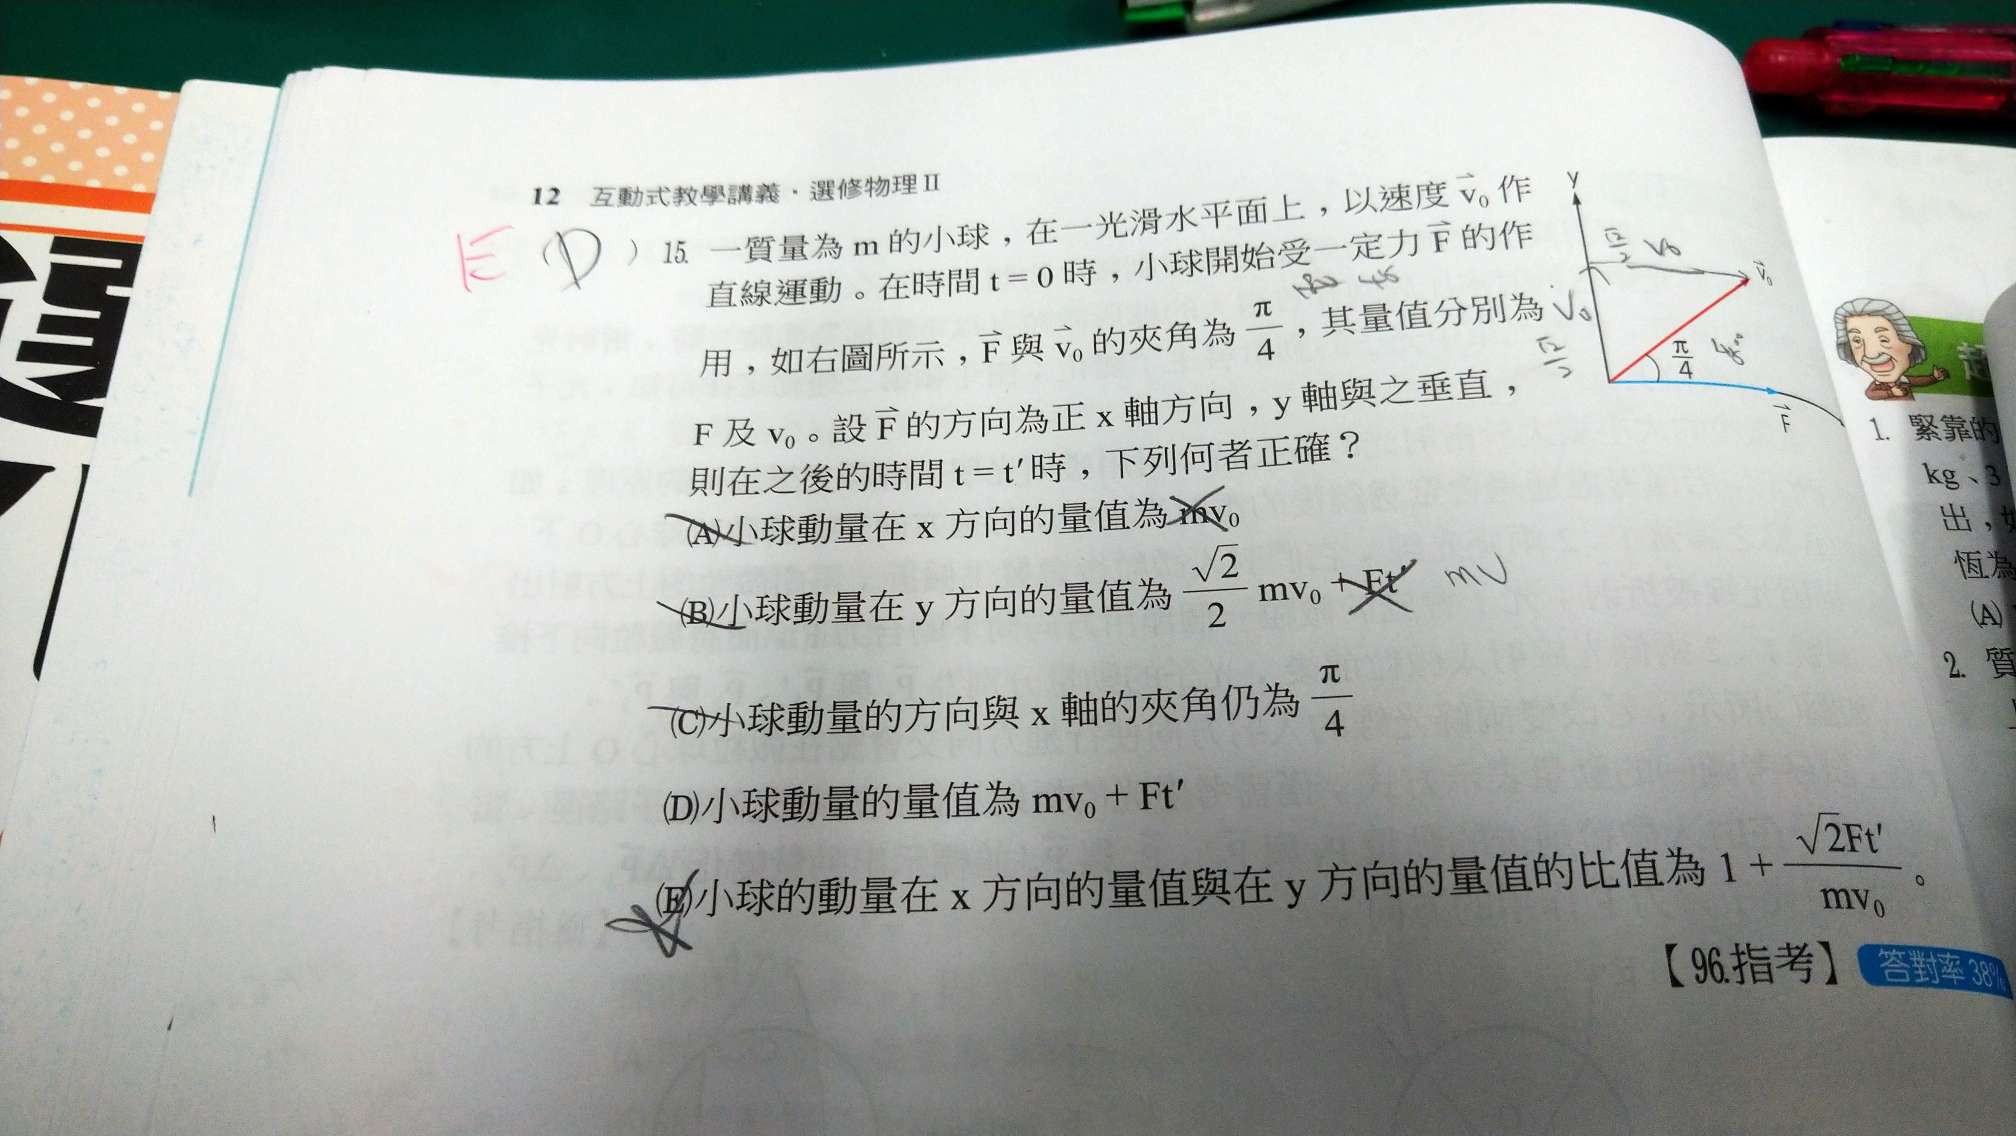 12 互動式教學講義·選修物理 II
E ( D ) 15. 一質量為 m 的小球,在一光滑水平面上,以速度 v⃗₀ 作
直線運動。在時間 t = 0 時,小球開始受一定力 F⃗ 的作
用,如右圖所示,F⃗ 與 v⃗₀ 的夾角為 π/4,其量值分別為
F 及 v₀。設 F⃗ 的方向為正 x 軸方向,y 軸與之垂直,
則在之後的時間 t = t′ 時,下列何者正確?
(A)小球動量在 x 方向的量值為 mv₀
(B)小球動量在 y 方向的量值為 √2/2 mv₀ + Ft′ mv
(C)小球動量的方向與 x 軸的夾角仍為 π/4
(D)小球動量的量值為 mv₀ + Ft′
(E)小球的動量在 x 方向的量值與在 y 方向的量值的比值為 1 + √2Ft′/mv₀。
【96.指考】 答對率 38%
y
√2/2 v₀
v⃗₀
v₀
√2/2
π/4 45°
F⃗
1. 緊靠的
kg、3
出,
恆為
(A)
2. 質